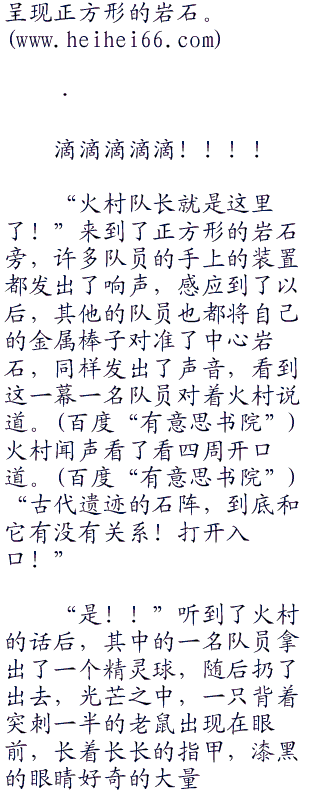 呈现正方形的岩石。
(www.heihei66.com)
.
滴滴滴滴滴！！！！
“火村队长就是这里
了！”来到了正方形的岩石
旁，许多队员的手上的装置
都发出了响声，感应到了以
后，其他的队员也都将自己
的金属棒子对准了中心岩
石，同样发出了声音，看到
这一幕一名队员对着火村说
道。(百度“有意思书院”)
火村闻声看了看四周开口
道。(百度“有意思书院”)
“古代遗迹的石阵，到底和
它有没有关系！打开入
口！”
“是！！”听到了火村
的话后，其中的一名队员拿
出了一个精灵球，随后扔了
出去，光芒之中，一只背着
突刺一半的老鼠出现在眼
前，长着长长的指甲，漆黑
的眼睛好奇的大量